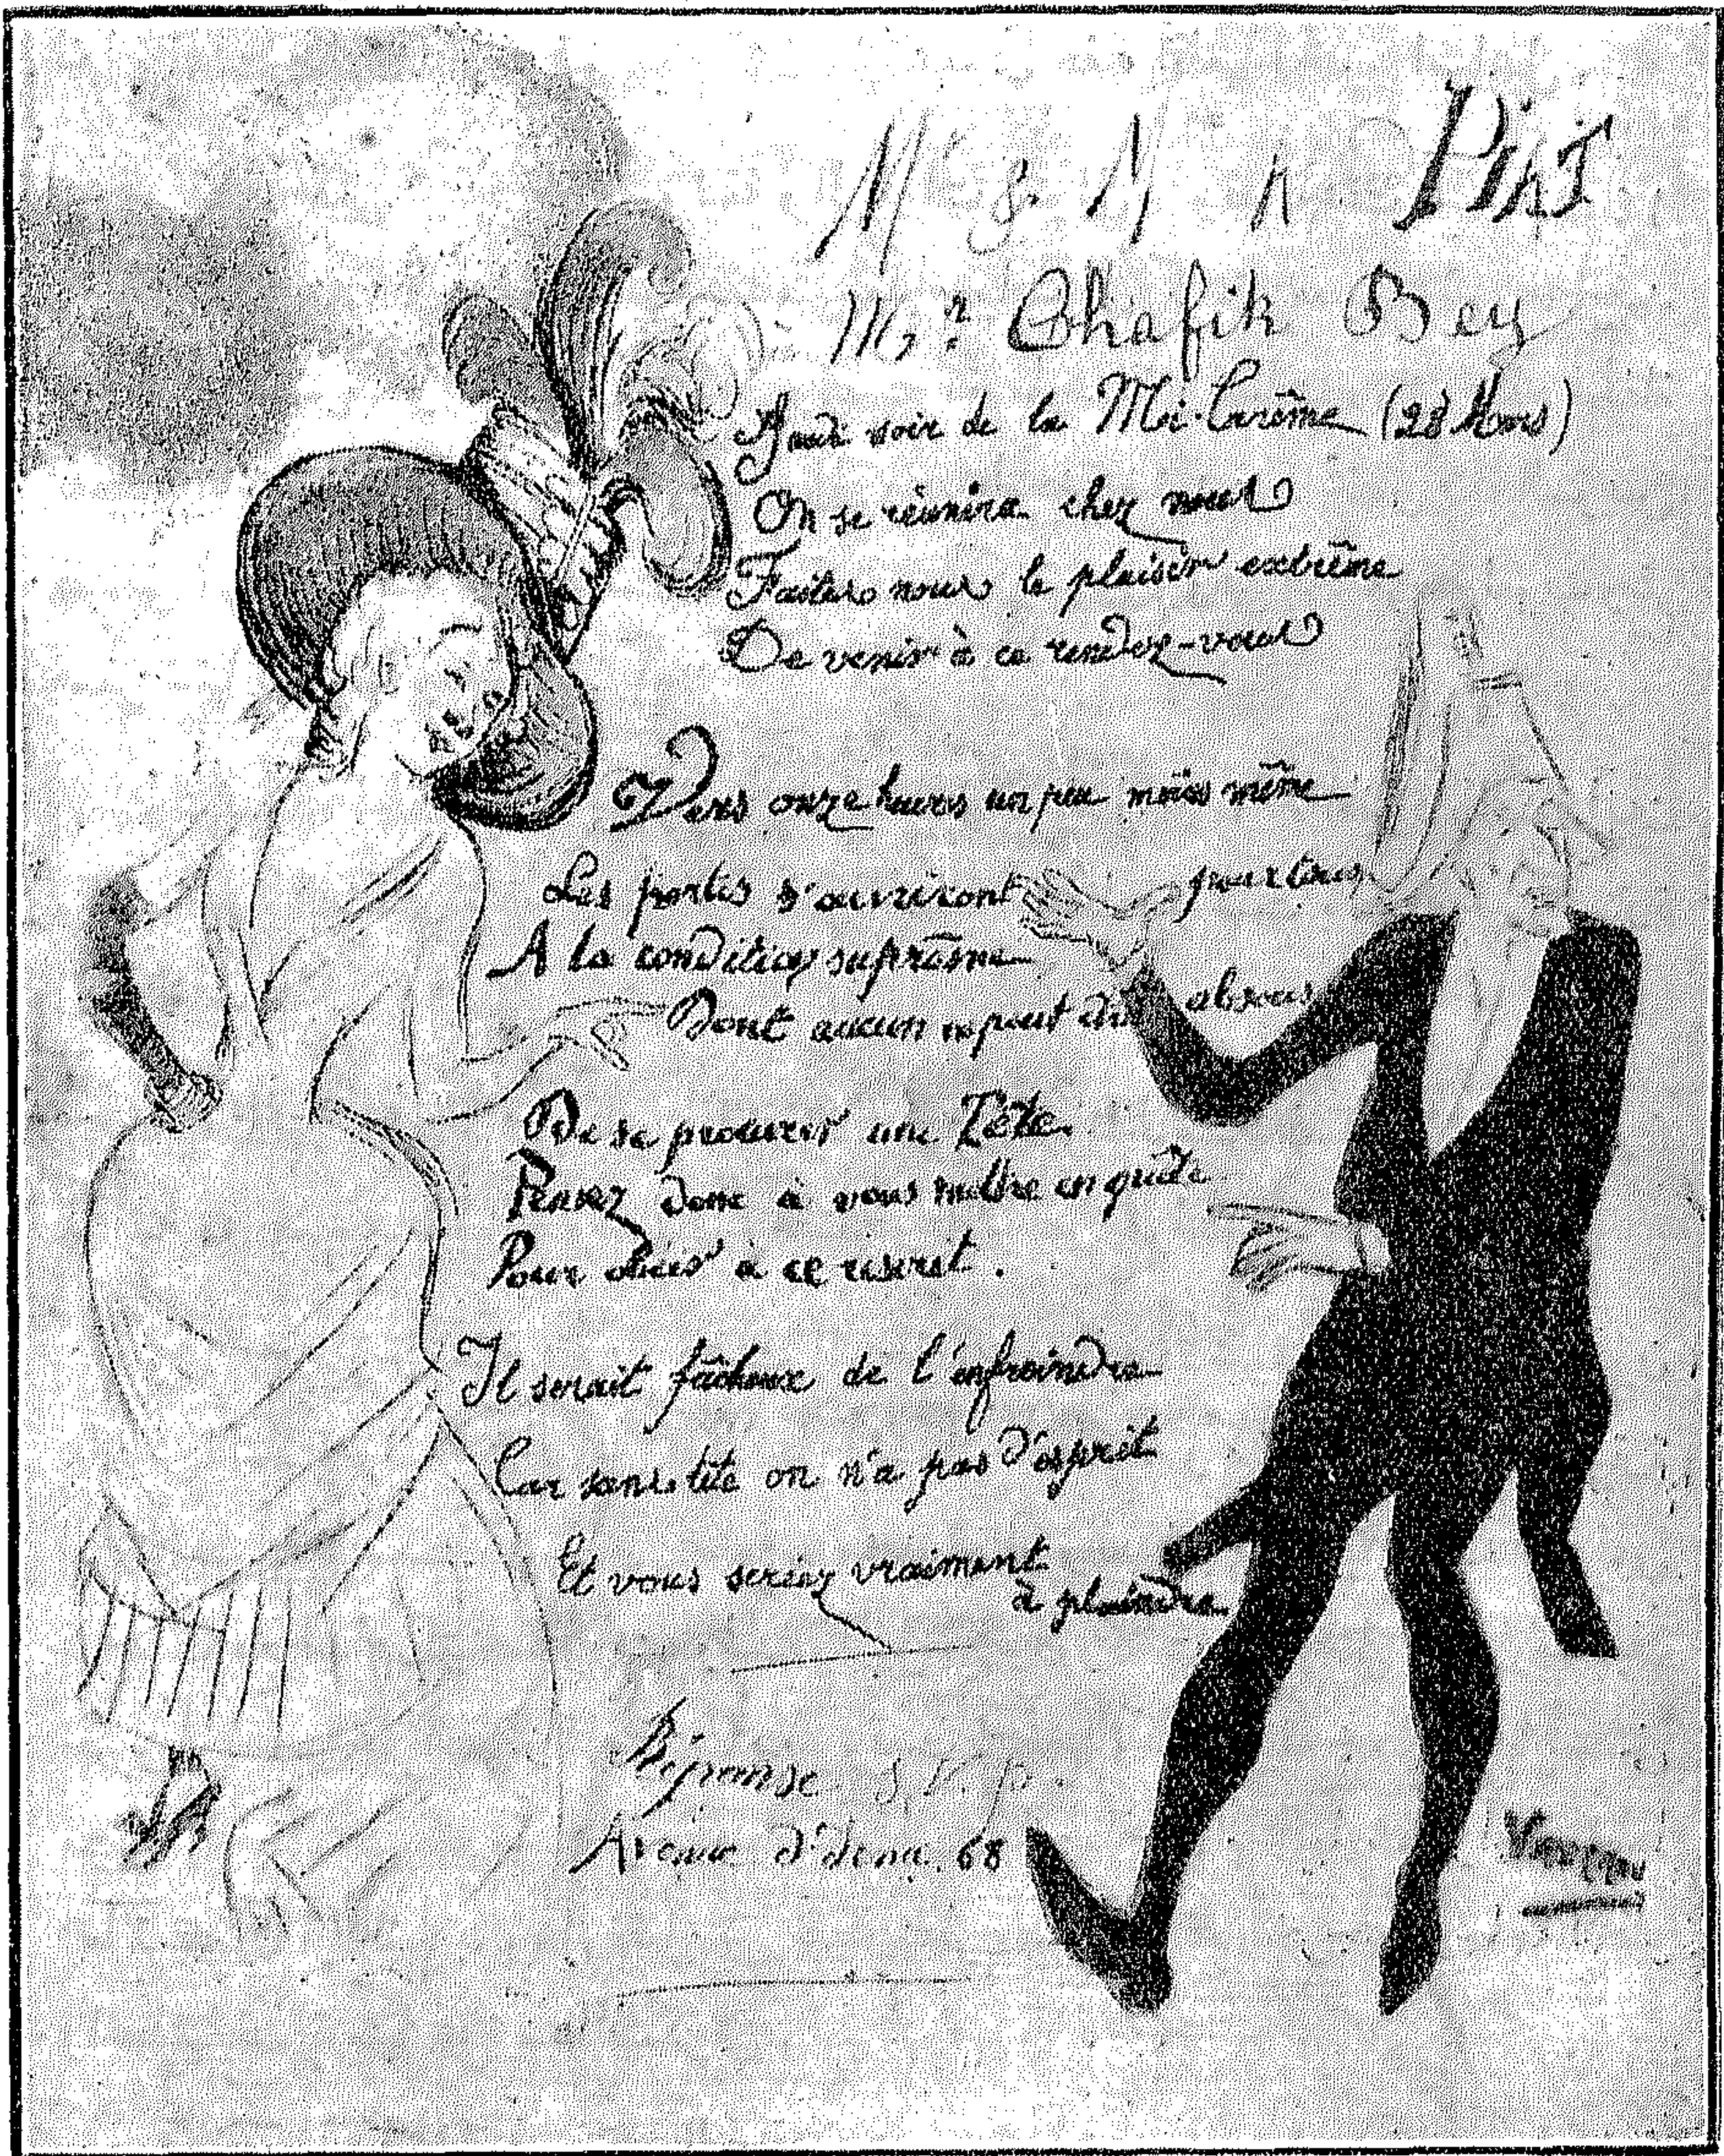 M & M A PIAT
Mr Chafik Bey
Jeudi soir de la Mi-Carême (28 Mars)
On se réunira chez nous
Faites nous le plaisir extrême
De venir à ce rendez-vous
Vers onze heures un peu moins même
Les portes s'ouvriront pour tous
A la condition suprême
Dont aucun n'peut être absous
De se procurer une Tête
Pensez donc à vous mettre en quête
Pour obéir à ce rescrit.
Il serait fâcheux de l'enfreindre
Car sans tête on n'a pas d'esprit
Et vous seriez vraiment
à plaindre
Réponse S.V.P.
Avenue d'Iéna. 68